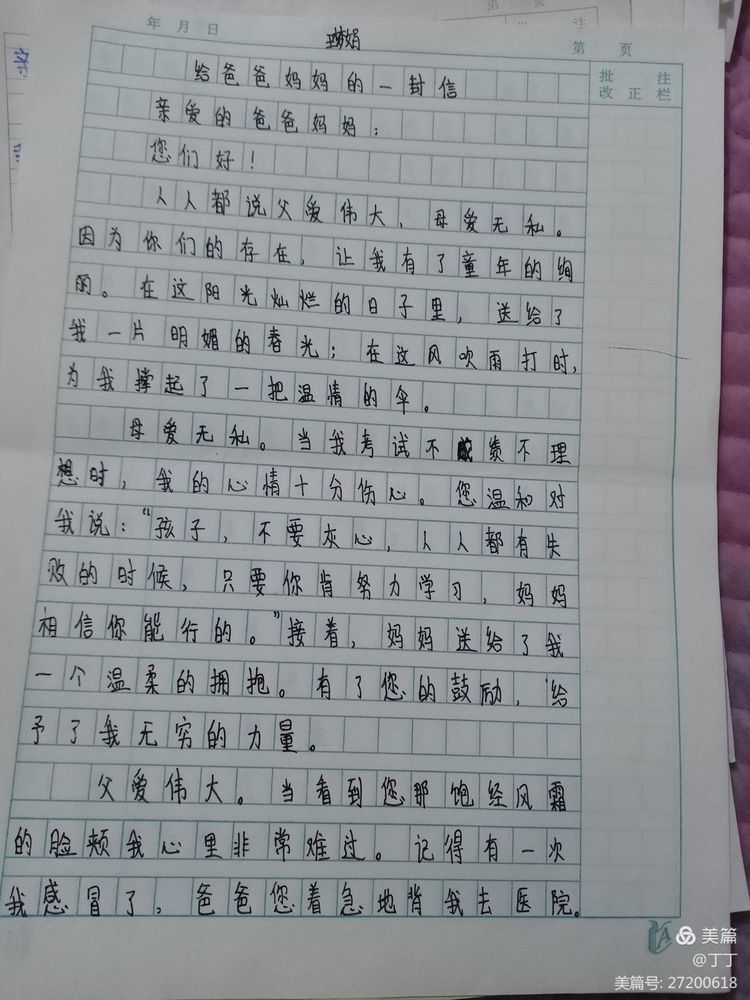 年 月 日
第 页
批 注
改 正 栏
给爸爸妈妈的一封信
亲爱的爸爸妈妈：
您们好！
人人都说父爱伟大，母爱无私。
因为你们的存在，让我有了童年的绚
丽。在这阳光灿烂的日子里，送给了
我一片明媚的春光；在这风吹雨打时，
为我撑起了一把温情的伞。
母爱无私。当我考试不成绩不理
想时，我的心情十分伤心。您温和对
我说：“孩子，不要灰心，人人都有失
败的时候，只要你肯努力学习，妈妈
相信你能行的。”接着，妈妈送给了我
一个温柔的拥抱。有了您的鼓励，给
予了我无穷的力量。
父爱伟大。当看到您那饱经风霜
的脸颊我心里非常难过。记得有一次
我感冒了，爸爸您着急地背我去医院。
美篇
@丁丁
美篇号：27200618